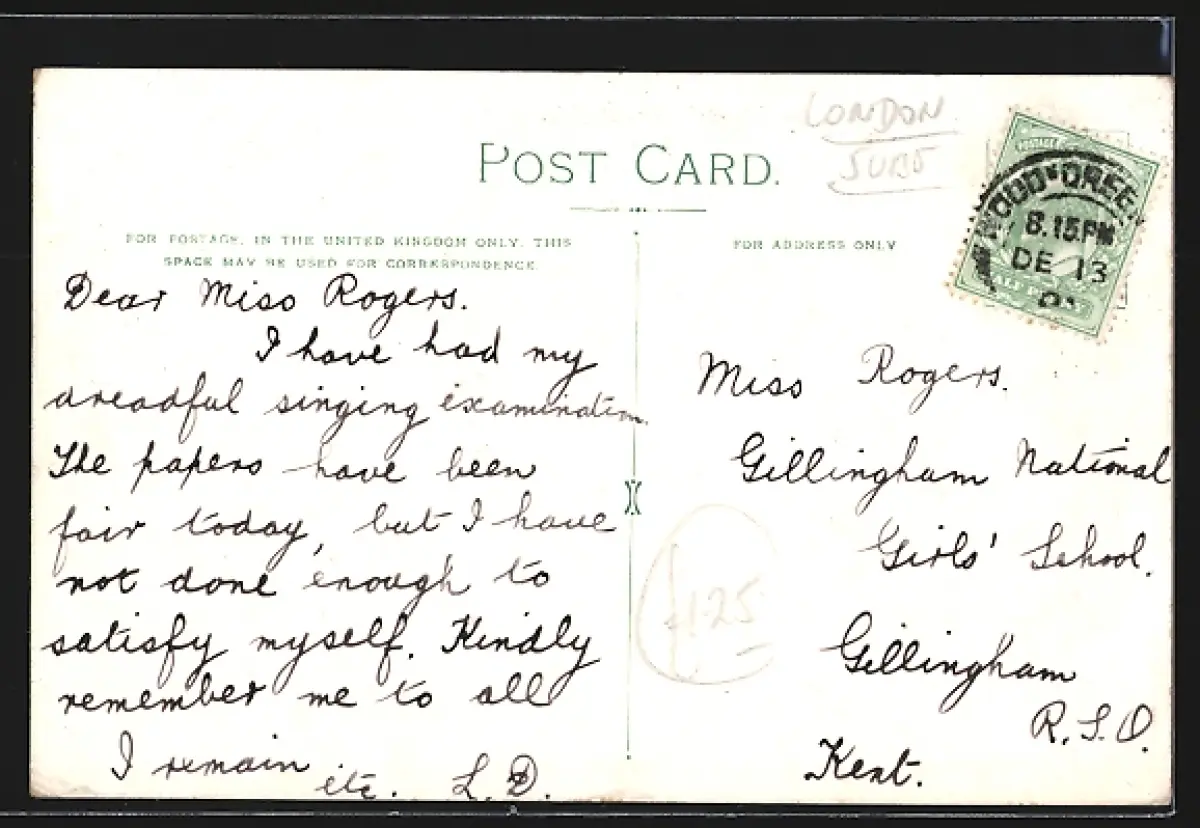 LONDON
SUBS
POST CARD.
FOR POSTAGE, IN THE UNITED KINGDOM ONLY. THIS
SPACE MAY BE USED FOR CORRESPONDENCE.
FOR ADDRESS ONLY
8.15.PM
DE 13
Dear Miss Rogers.
I have had my
dreadful singing examination.
The papers have been
fair today, but I have
not done enough to
satisfy myself. Kindly
remember me to all
I remain
etc. L.D.
Miss Rogers.
Gillingham National
Girls' School.
Gillingham
R.S.O.
Kent.
£1.25